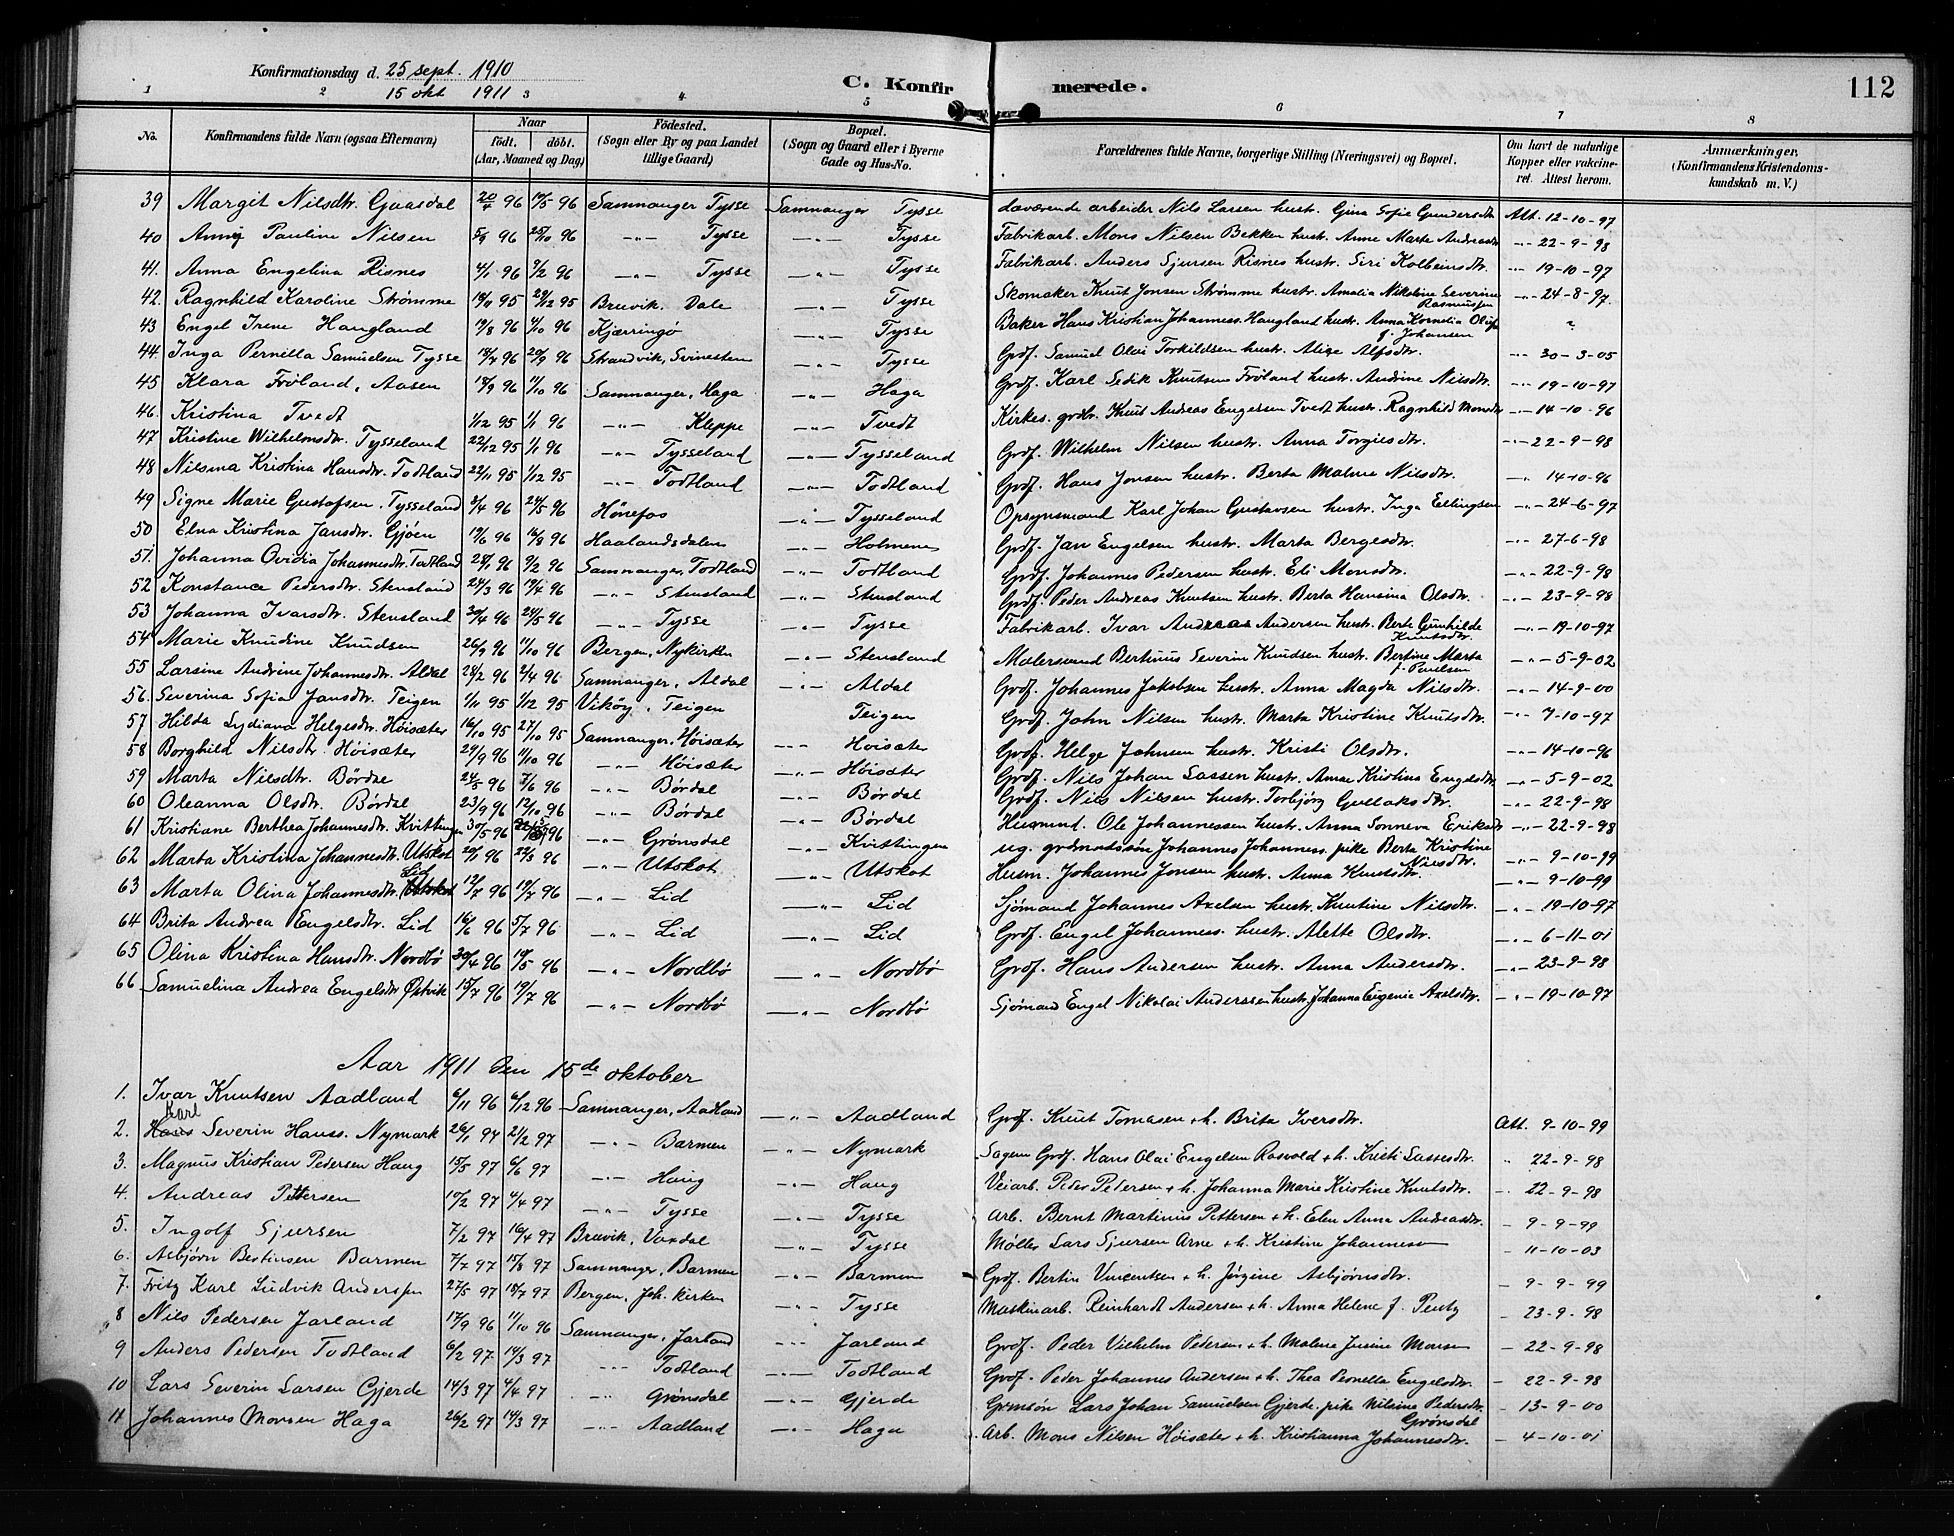 Konfirmationsdag d. 25 sept. 1910
15 okt 1911
C. Konfirmerede.
112
1 2 3 4 5 6 7 8
No. Konfirmandens fulde Navn (ogsaa Efternavn) Naar født. døbt. (Aar, Maaned og Dag) Fødested. (Sogn eller By og paa Landet tillige Gaard) Bopæl. (Sogn og Gaard eller i Byerne Gade og Hus-No. Forældrenes fulde Navne, borgerlige Stilling (Næringsvei) og Bopæl. Om havt de naturlige Kopper eller vakcineret. Attest herom. Anmærkninger. (Konfirmandens Kristendomskundskab m. V.)
39 Margit Nilsdtr. Gaasdal 20/4 96 17/5 96 Samnanger Tysse Samnanger Tysse daværende arbeider Nils Larsen hustr. Gina Sofie Gundersdtr Att. 12-10-97
40 Anny Pauline Nilsen 5/9 96 25/10 96 -"- Tysse -"- Tysse Fabrikarb. Mons Nilsen Bekken hustr. Anne Marte Andreasdtr -"- 22-9-98
41. Anna Engelina Risnes 4/1 96 9/2 96 -"- Tysse -"- Tysse Fabrikarb. Anders Sjursen Risnes hustr. Siri Kolbeinsdtr. -"- 19-10-97
42. Ragnhild Karoline Strømme 19/11 95 29/12 95 Bruvik. Dale -"- Tysse Skomaker Knut Jonsen Strømme hustr. Amalia Nikoline Severine Rasmussen -"- 24-8-97
43 Engel Irene Haugland 19/8 96 4/10 96 Kjæringø -"- Tysse Baker Hans Kristian Johanness. Haugland hustr. Anna Kornelia Oluf f. Johansen "
44 Inga Pernilla Samuelsen Tysse 18/7 96 20/9 96 Strandvik, Svinesteen -"- Tysse Grdf. Samuel Olai Torkildsen hustr. Alise Alfsdtr. -"- 30-3-05
45 Klara Frøland, Aasen 18/9 96 11/10 96 Samnanger, Haga -"- Haga Grdf. Karl Sedik Knutsen Frøland hustr. Andrine Nilsdtr. -"- 19-10-97
46. Kristina Tvedt 1/12 95 1/1 96 -"- Kleppe -"- Tvedt Kirkes. grdbr. Knut Andreas Engelsen Tvedt hustr. Ragnhild Monsdtr -"- 14-10-96
47 Kristine Wilhelmsdtr. Tysseland 22/12 95 1/1 96 -"- Tysseland -"- Tysseland Grdf. Wilhelm Nilsen hustr. Anna Torgilsdtr. -"- 22-9-98
48 Nilsina Kristina Hansdtr. Todtland 22/11 95 1/12 95 -"- Todtland -"- Todtland Grdf. Hans Jonsen hustr. Berta Malene Nilsdtr. -"- 14-10-96
49 Signe Marie Gustafsen. Tysseland 3/4 96 24/5 96 Hønefos -"- Tysseland Opsynsmand Karl Johan Gustavsen hustr. Inga Ellingsen -"- 24-6-97
50 Elna Kristina Jansdtr. Gjøen 19/6 96 16/8 96 Haalandsdalen -"- Holmene Grdf. Jan Engelsen hustr. Marta Bergesdtr. -"- 27-6-98
51. Johanna Ovidia Johannesdtr. Todtland 28/1 96 9/2 96 Samnanger, Todtland -"- Todtland Grdf. Johannes Pedersen hustr. Eli Monsdtr. -"- 22-9-98
52 Konstance Pedersdtr. Stensland 24/3 96 19/4 96 -"- Stensland -"- Stensland Grdf. Peder Andreas Knutsen hustr. Berta Hansina Olsdtr. -"- 23-9-98
53 Johanna Ivarsdtr. Stensland 30/4 96 24/5 96 -"- Tysse -"- Tysse Fabrikarb. Ivar Andreas Andersen hustr. Berte Gunhilde Knutsdtr. -"- 19-10-97
54 Marie Knudine Knudsen 26/9 96 11/10 96 Bergen, Nykirken -"- Stensland Malersvend Bertinus Severin Knudsen hustr. Bertine Marta f. Paulsen -"- 5-9-02
55 Larsine Andrine Johannesdtr. Aldal 28/2 96 2/4 96 Samnanger, Aldal -"- Aldal Grdf. Johannes Jakobsen hustr. Anna Magda Nilsdtr. -"- 14-9-00
56. Severina Sofia Jansdtr. Teigen 1/11 95 1/12 95 Vikøy, Teigen Teigen Grdf. John Nilsen hustr. Marta Kristine Knutsdtr. -"- 7-10-97
57 Hilda Lydiana Helgesdtr. Høisæter 16/10 95 27/10 95 Samnanger, Høisæter -"- Høisæter Grdf. Helge Johnsen hustr. Kristi Olsdtr. -"- 14-10-96
58 Borghild Nilsdtr. Høisæter 29/9 96 11/10 96 -"- Høisæter -"- Høisæter Grdf. Nils Johan Lassen hustr. Anna Kristina Engelsdtr -"- 5-9-02
59 Marta Nilsdtr. Børdal 24/5 96 7/6 96 -"- Børdal -"- Børdal Grdf. Nils Nilsen hustr. Torbjørg Gullaksdtr. -"- 22-9-98
60 Oleanna Olsdtr. Børdal 23/9 96 12/10 96 -"- Børdal -"- Børdal Husmnd. Ole Johannessen hustr. Anna Sønneva Eriksdtr -"- 22-9-98
61 Kristiane Berthea Johannesdtr. Kvittingen 30/5 96 96 -"- Grønsdal -"- Kvittingen ug. grdmandssøn Johannes Johanness. pike Berta Kristine Nilsdtr. -"- 9-10-99
62 Marta Kristina Johannesdtr. Utskot 20/1 96 22/3 96 -"- Utskot -"- Utskot Husm. Johannes Jonsen hustr. Anna Knutsdtr. -"- 9-10-99
63 Marta Olina Johannesdtr. Lid 12/7 96 19/7 96 -"- Lid -"- Lid Sjømand Johannes Axelsen hustr. Knutine Nilsdtr. -"- 19-10-97
64 Brita Andrea Engelsdtr. Lid 16/6 96 5/7 96 -"- Lid -"- Lid Grdf. Engel Johanness. hustr. Alette Olsdtr. -"- 6-11-01
65 Olina Kristina Hansdtr. Nordbø 30/4 96 10/5 96 -"- Nordbø -"- Nordbø Grdf. Hans Andersen hustr. Anna Andersdtr. -"- 23-9-98
66 Samuelina Andrea Engelsdtr Østvik 15/7 96 19/7 96 -"- Nordbø -"- Nordbø Sjømand Engel Nikolai Anderssen hustr. Johanna Eugenie Axelsdtr. -"- 19-10-97
Aar 1911 den 15de oktober
1. Ivar Knutsen Aadland 6/11 96 6/12 96 Samnanger, Aadland -"- Aadland Grdf. Knut Tomasen + h. Brita Iversdtr. Att. 9-10-99
Karl
2. Hans Severin Hanss. Nymark 26/1 97 21/2 97 -"- Barmen -"- Nymark Sagem Grdf. Hans Olai Engelsen Rosvold + h. Kristi Lassesdtr. " 22-9-98
3. Magnus Kristian Pedersen Haug 15/5 97 6/6 97 -"- Haug -"- Haug Veiarb. Peder Pedersen + h. Johanna Marie Kristine Knutsdtr. -"- 22-9-98
4. Andreas Pettersen 17/2 97 4/4 97 -"- Tysse -"- Tysse Arb. Bernt Martinius Pettersen + h. Elen Anna Andreasdtr. - 9-9-99
5. Ingolf Sjursen 7/2 97 16/4 97 Bruvik, Vaxdal -"- Tysse Møller Lars Sjursen Arne + h. Kristine Johannesen - 11-10-03
6. Asbjørn Bertinsen Barmen 7/7 97 15/8 97 Samnanger, Barmen -"- Barmen Grdf. Bertin Vincentsen + h. Jørgine Asbjørnsdtr. - 9-9-99
7. Fritz Karl Ludvik Anderssen 27/5 97 18/7 97 Bergen, Joh. kirken -"- Tysse Maskinarb. Reinhardt Andersen + h. Anna Helene f. Pentz - 23-9-98
8 Nils Pedersen Jarland 17/9 96 11/10 96 Samnanger, Jarland -"- Jarland Grdf. Peder Vilhelm Pedersen + h. Malene Jusine Monsen - 22-9-98
9 Anders Pedersen Todtland 6/2 97 14/3 97 -"- Todtland -"- Todtland Grdf. Peder Johannes Andersen + h. Thea Pernella Engelsdtr. - 22-9-98
10 Lars Severin Larsen Gjerde 14/3 97 4/4 97 -"- Grønsdal -"- Gjerde Grmsøn Lars Johan Samuelsen Gjerde. pike Nilsine Pedersdtr. Grønsdal - 13-9-00
11 Johannes Monsen Haga 26/2 97 14/3 97 -"- Aadland -"- Haga Arb. Mons Nilsen Høisæter + h. Kristianna Johannesdtr. - 4-10-01